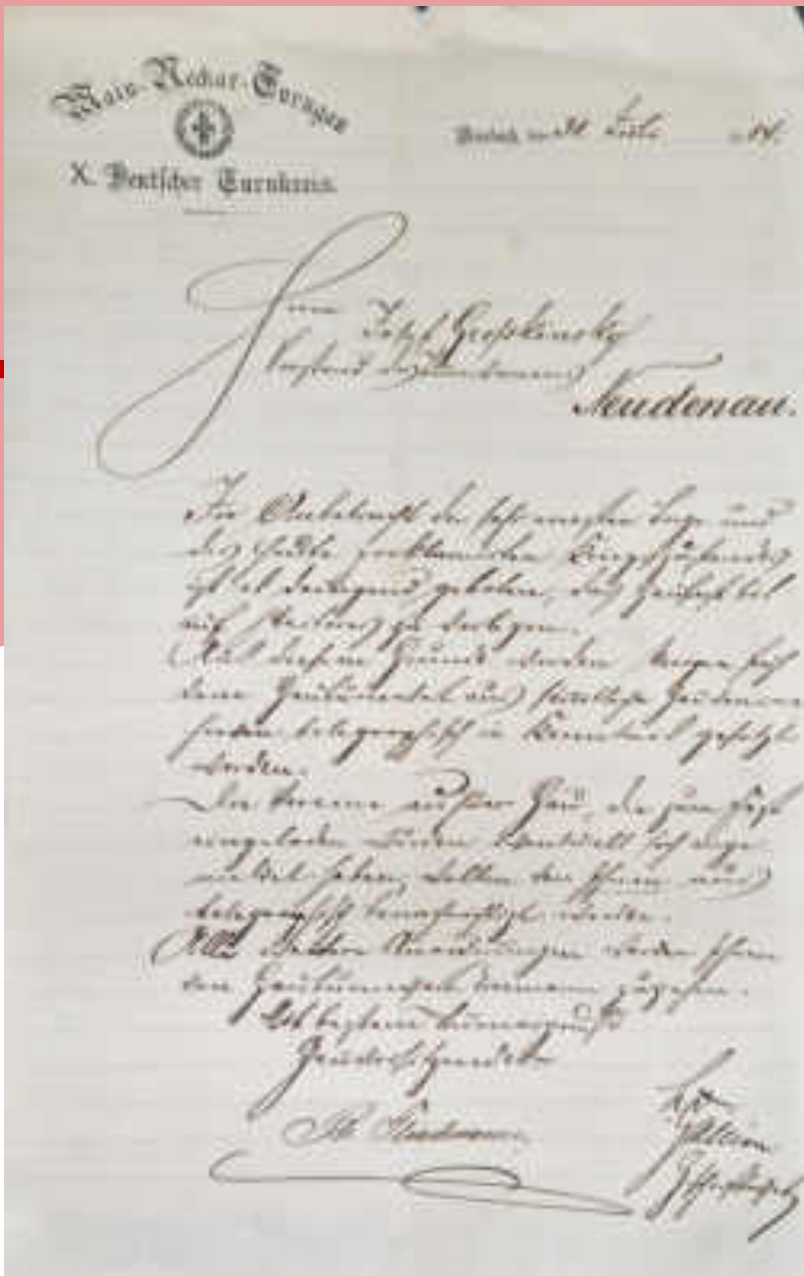 Main-Neckar-Turngau
X. Deutscher Turnkreis.
Mosbach, den 31. Juli 14.
Herrn Josef Großkinsky
Vorstand des Turnvereins
Neudenau.
In Anbetracht der sehr ernsten Lage und
des heute proklamirten Kriegszustandes
ist es dringend geboten, das Gaufest bis
auf Weiteres zu verlegen.
Aus diesem Grunde werden Morgen früh
vom aus sämtliche Gauvereine
hievon telegraphisch in Kenntnis gesetzt
werden.
Die Vereine außer Gau, die zum Fest
eingeladen wurden eventuell sich ange
meldet haben, wollen von Ihnen aus
telegraphisch benachrichtigt werden.
Alle weitere Anordnungen werden Ihnen
vom zugehen.
Mit bestem Turnergruß
Gauvorsitzender